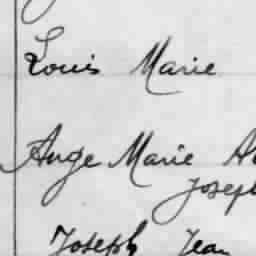 Louis Marie
Ange Marie
Joseph
Joseph Jean